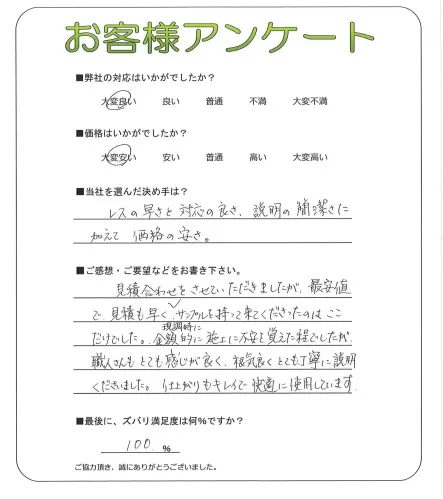 お客様アンケート
■弊社の対応はいかがでしたか？
大変良い 良い 普通 不満 大変不満
■価格はいかがでしたか？
大変安い 安い 普通 高い 大変高い
■当社を選んだ決め手は？
レスの早さと対応の良さ、説明の簡潔さに
加えて価格の安さ。
■ご感想・ご要望などをお書き下さい。
見積合わせをさせていただきましたが、最安値
で、見積も早く、サンプルを持って来てくださったのはここ
現調時に
だけでした。金額的に施工に不安を覚えた程でしたが、
職人さんもとても感じが良く、根気良くとても丁寧に説明
くださいました。仕上がりもキレイで快適に使用しています。
■最後に、ズバリ満足度は何%ですか？
100 %
ご協力頂き、誠にありがとうございました。